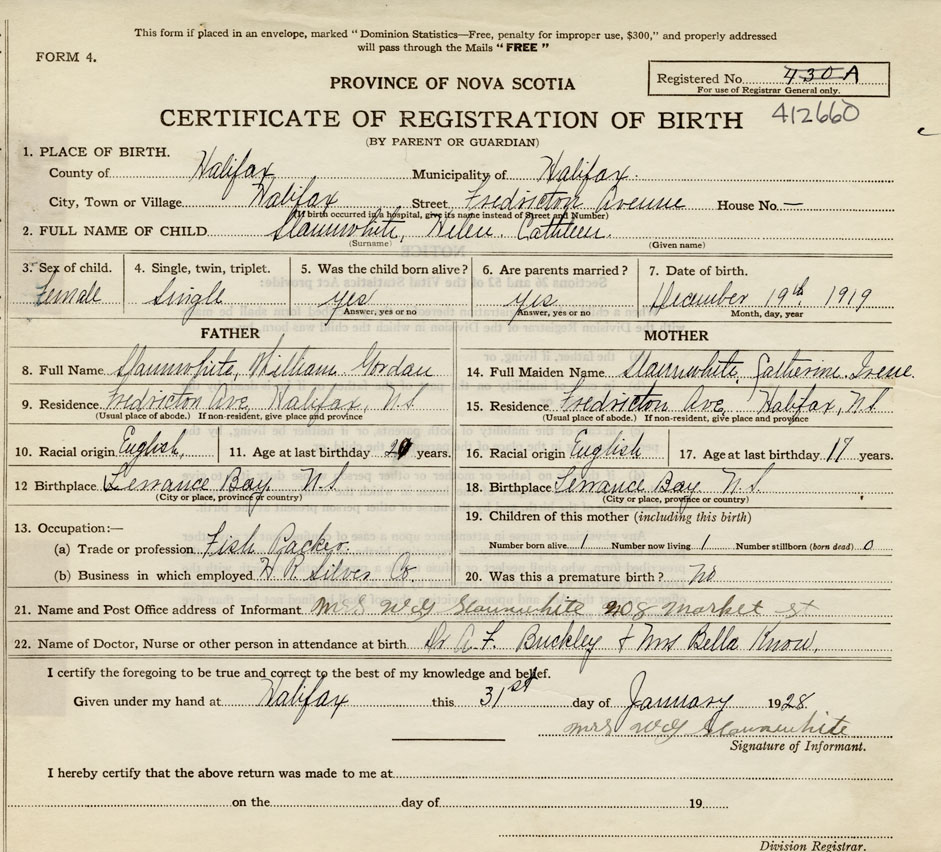 This form if placed in an envelope, marked "Dominion Statistics—Free, penalty for improper use, $300," and properly addressed
will pass through the Mails "FREE"
FORM 4.
Registered No. 430A
For use of Registrar General only.
PROVINCE OF NOVA SCOTIA
412660
CERTIFICATE OF REGISTRATION OF BIRTH
(BY PARENT OR GUARDIAN)
1. PLACE OF BIRTH.
County of Halifax Municipality of Halifax.
City, Town or Village Halifax Street Fredricton Avenue House No. —
(If birth occurred in a hospital, give its name instead of Street and Number)
2. FULL NAME OF CHILD Slaunwhite, Helen Cathleen.
(Surname) (Given name)
3. Sex of child. 4. Single, twin, triplet. 5. Was the child born alive? 6. Are parents married? 7. Date of birth.
Female Single yes yes December 19th 1919
Answer, yes or no Answer, yes or no Month, day, year
FATHER MOTHER
8. Full Name Slaunwhite, William Gordan 14. Full Maiden Name Slaunwhite, Catherine Irene.
9. Residence Fredricton Ave, Halifax, NS 15. Residence Fredricton Ave, Halifax, NS
(Usual place of abode.) If non-resident, give place and province (Usual place of abode.) If non-resident, give place and province
10. Racial origin English, 11. Age at last birthday years. 16. Racial origin English 17. Age at last birthday 17 years.
12 Birthplace Terrance Bay N.S. 18. Birthplace Terrance Bay N.S.
(City or place, province or country) (City or place, province or country)
13. Occupation:— 19. Children of this mother (including this birth)
(a) Trade or profession Fish Packer. Number born alive 1 Number now living 1 Number stillborn (born dead) 0
(b) Business in which employed H R. Silver Co. 20. Was this a premature birth? no
21. Name and Post Office address of Informant Mrs W G Slaunwhite Market st
22. Name of Doctor, Nurse or other person in attendance at birth Dr A. F. Buckley & Mrs Bella Know.
I certify the foregoing to be true and correct to the best of my knowledge and belief.
Given under my hand at Halifax this 31st day of January 1928
Mrs W G Slaunwhite
Signature of Informant.
I hereby certify that the above return was made to me at
on the day of 19
Division Registrar.